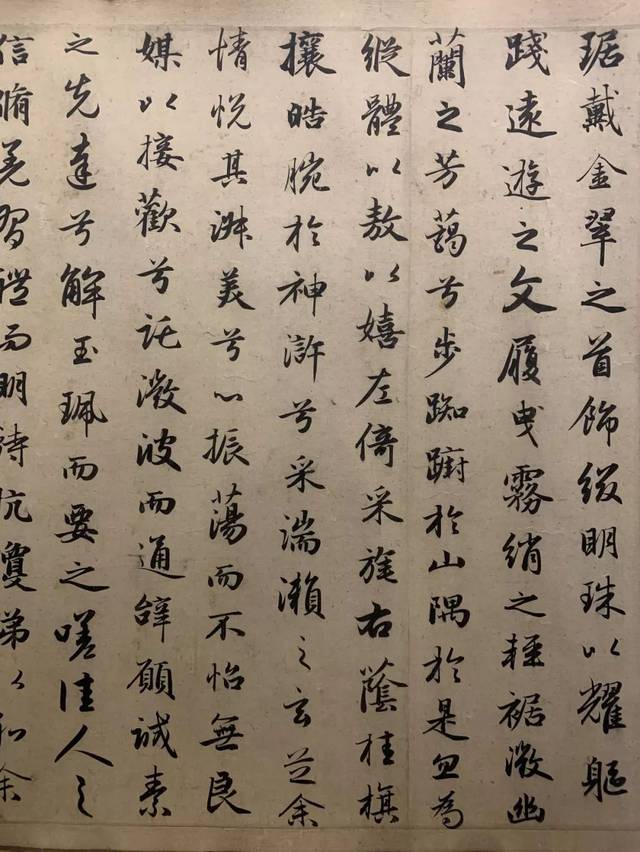 琚戴金翠之首飾綴明珠以耀軀
踐遠遊之文履曳霧綃之輕裾微幽
蘭之芳藹兮步踟躕於山隅於是忽為
縱體以敖以嬉左倚采旄右蔭桂旗
攘皓腕於神滸兮采湍瀨之玄芝余
情悅其淑美兮心振蕩而不怡無良
媒以接歡兮託微波而通辭願誠素
之先達兮解玉珮而要之嗟佳人之
信脩羌習禮而明詩抗瓊珶以和余